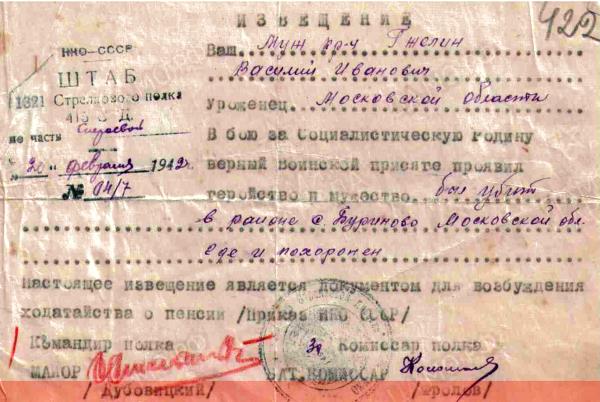 ИЗВЕЩЕНИЕ
422
НКО-СССР
ШТАБ
1321 Стрелкового полка
415 С Д.
не часть
"20" февраля 1942г
№ 04/7
Ваш муж кр-ц Гжелин
Василий Иванович
Уроженец Московской области
В бою за Социалистическую Родину
верный Воинской присяге проявил
геройство и мужество был убит
в районе с. Буриново Московской обл.
где и похоронен
Настоящее извещение является документом для возбуждения
ходатайства о пенсии /Приказ НКО СССР/
Командир полка
МАЙОР
/Дубовицкий/
Зa Комиссар полка
БАТ. КОМИССАР
/Фролов/